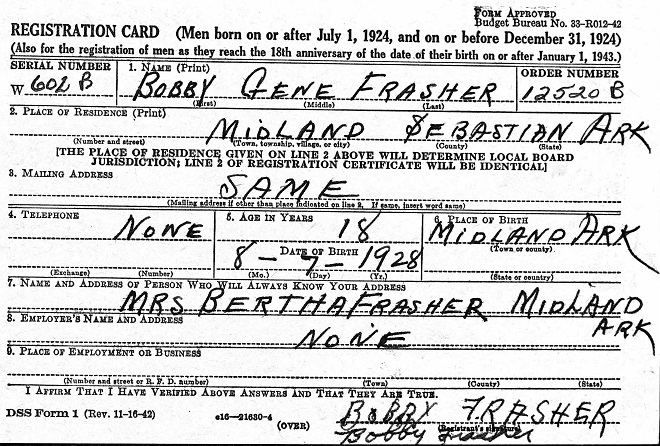 FORM APPROVED
Budget Bureau No. 33-R012-42
REGISTRATION CARD (Men born on or after July 1, 1924, and on or before December 31, 1924)
(Also for the registration of men as they reach the 18th anniversary of the date of their birth on or after January 1, 1943.)
SERIAL NUMBER 1. NAME (Print) ORDER NUMBER
W 602 B BOBBY GENE FRASHER 12520 B
(First) (Middle) (Last)
2. PLACE OF RESIDENCE (Print)
MIDLAND SEBASTIAN ARK
(Number and street) (Town, township, village, or city) (County) (State)
[THE PLACE OF RESIDENCE GIVEN ON LINE 2 ABOVE WILL DETERMINE LOCAL BOARD
JURISDICTION; LINE 2 OF REGISTRATION CERTIFICATE WILL BE IDENTICAL]
3. MAILING ADDRESS
SAME
(Mailing address if other than place indicated on line 2. If same, insert word same)
4. TELEPHONE 5. AGE IN YEARS 6. PLACE OF BIRTH
NONE 18 MIDLAND ARK
(Town or county)
DATE OF BIRTH
8-7-1928
(Exchange) (Number) (Mo.) (Day) (Yr.) (State or country)
7. NAME AND ADDRESS OF PERSON WHO WILL ALWAYS KNOW YOUR ADDRESS
MRS BERTHA FRASHER MIDLAND
ARK
8. EMPLOYER'S NAME AND ADDRESS
NONE
9. PLACE OF EMPLOYMENT OR BUSINESS
(Number and street or R. F. D. number) (Town) (County) (State)
I AFFIRM THAT I HAVE VERIFIED ABOVE ANSWERS AND THAT THEY ARE TRUE.
DSS Form 1 (Rev. 11-16-42) 16-21630-4 (OVER) BOBBY FRASHER
(Registrant's signature)
Bobby Frasher